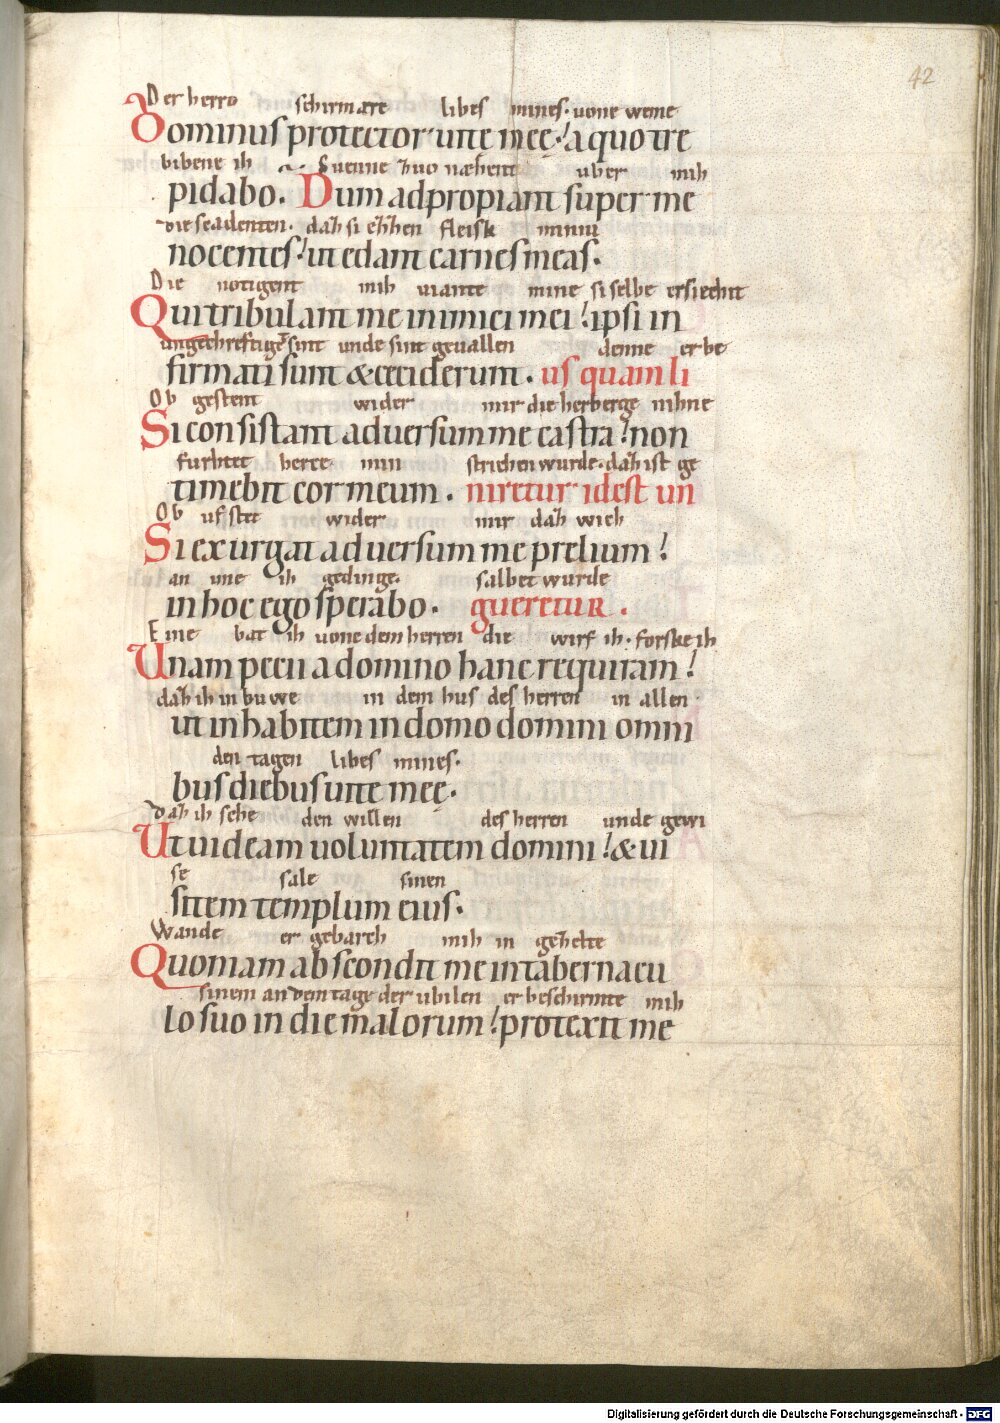 42
Der herro schirmare libes mines. uone weme
Dominus protector uite meę. a quo tre
bibene ih Suenne zuo næhent uber mih
pidabo. Dum adpropiant super me
die scadenten. daz si ezzen fleisk miniu
nocentes. ut edant carnes meas.
Die notigent mih uiante mine si selbe ersiecht
Qui tribulant me inimici mei. ipsi in
ungechreftiget sint unde sint geuallen denne er be
firmati sunt & ceciderunt. us quam li
Ob gestent wider mir die herberge nihne
Si consistant aduersum me castra. non
furhtet herce min strichen wurde. daz ist ge
timebit cor meum. niretur id est un
Ob ufstet wider mir daz wich
Si exurgat aduersum me prelium.
anime ih gedinge. salbet wurde
in hoc ego sperabo. gueretur.
Eine bat ih uone dem herren die wirf ih. forske ih
Unam pecii a domino hanc requiram.
daz ih in buwe in dem hus des herren in allen
ut inhabitem in domo domini omni
den tagen libes mines.
bus diebus uite meę.
daz ih sehe den willen des herren unde gewi
Ut uideam uoluntatem domini. & ui
se sale sinen
sitem templum eius.
Wande er gebarch mih in gezelte
Quoniam abscondit me in tabernacu
sinem an dem tage der ubilen er beschirmte mih
lo suo in die malorum. protexit me
Digitalisierung gefördert durch die Deutsche Forschungsgemeinschaft - DFG